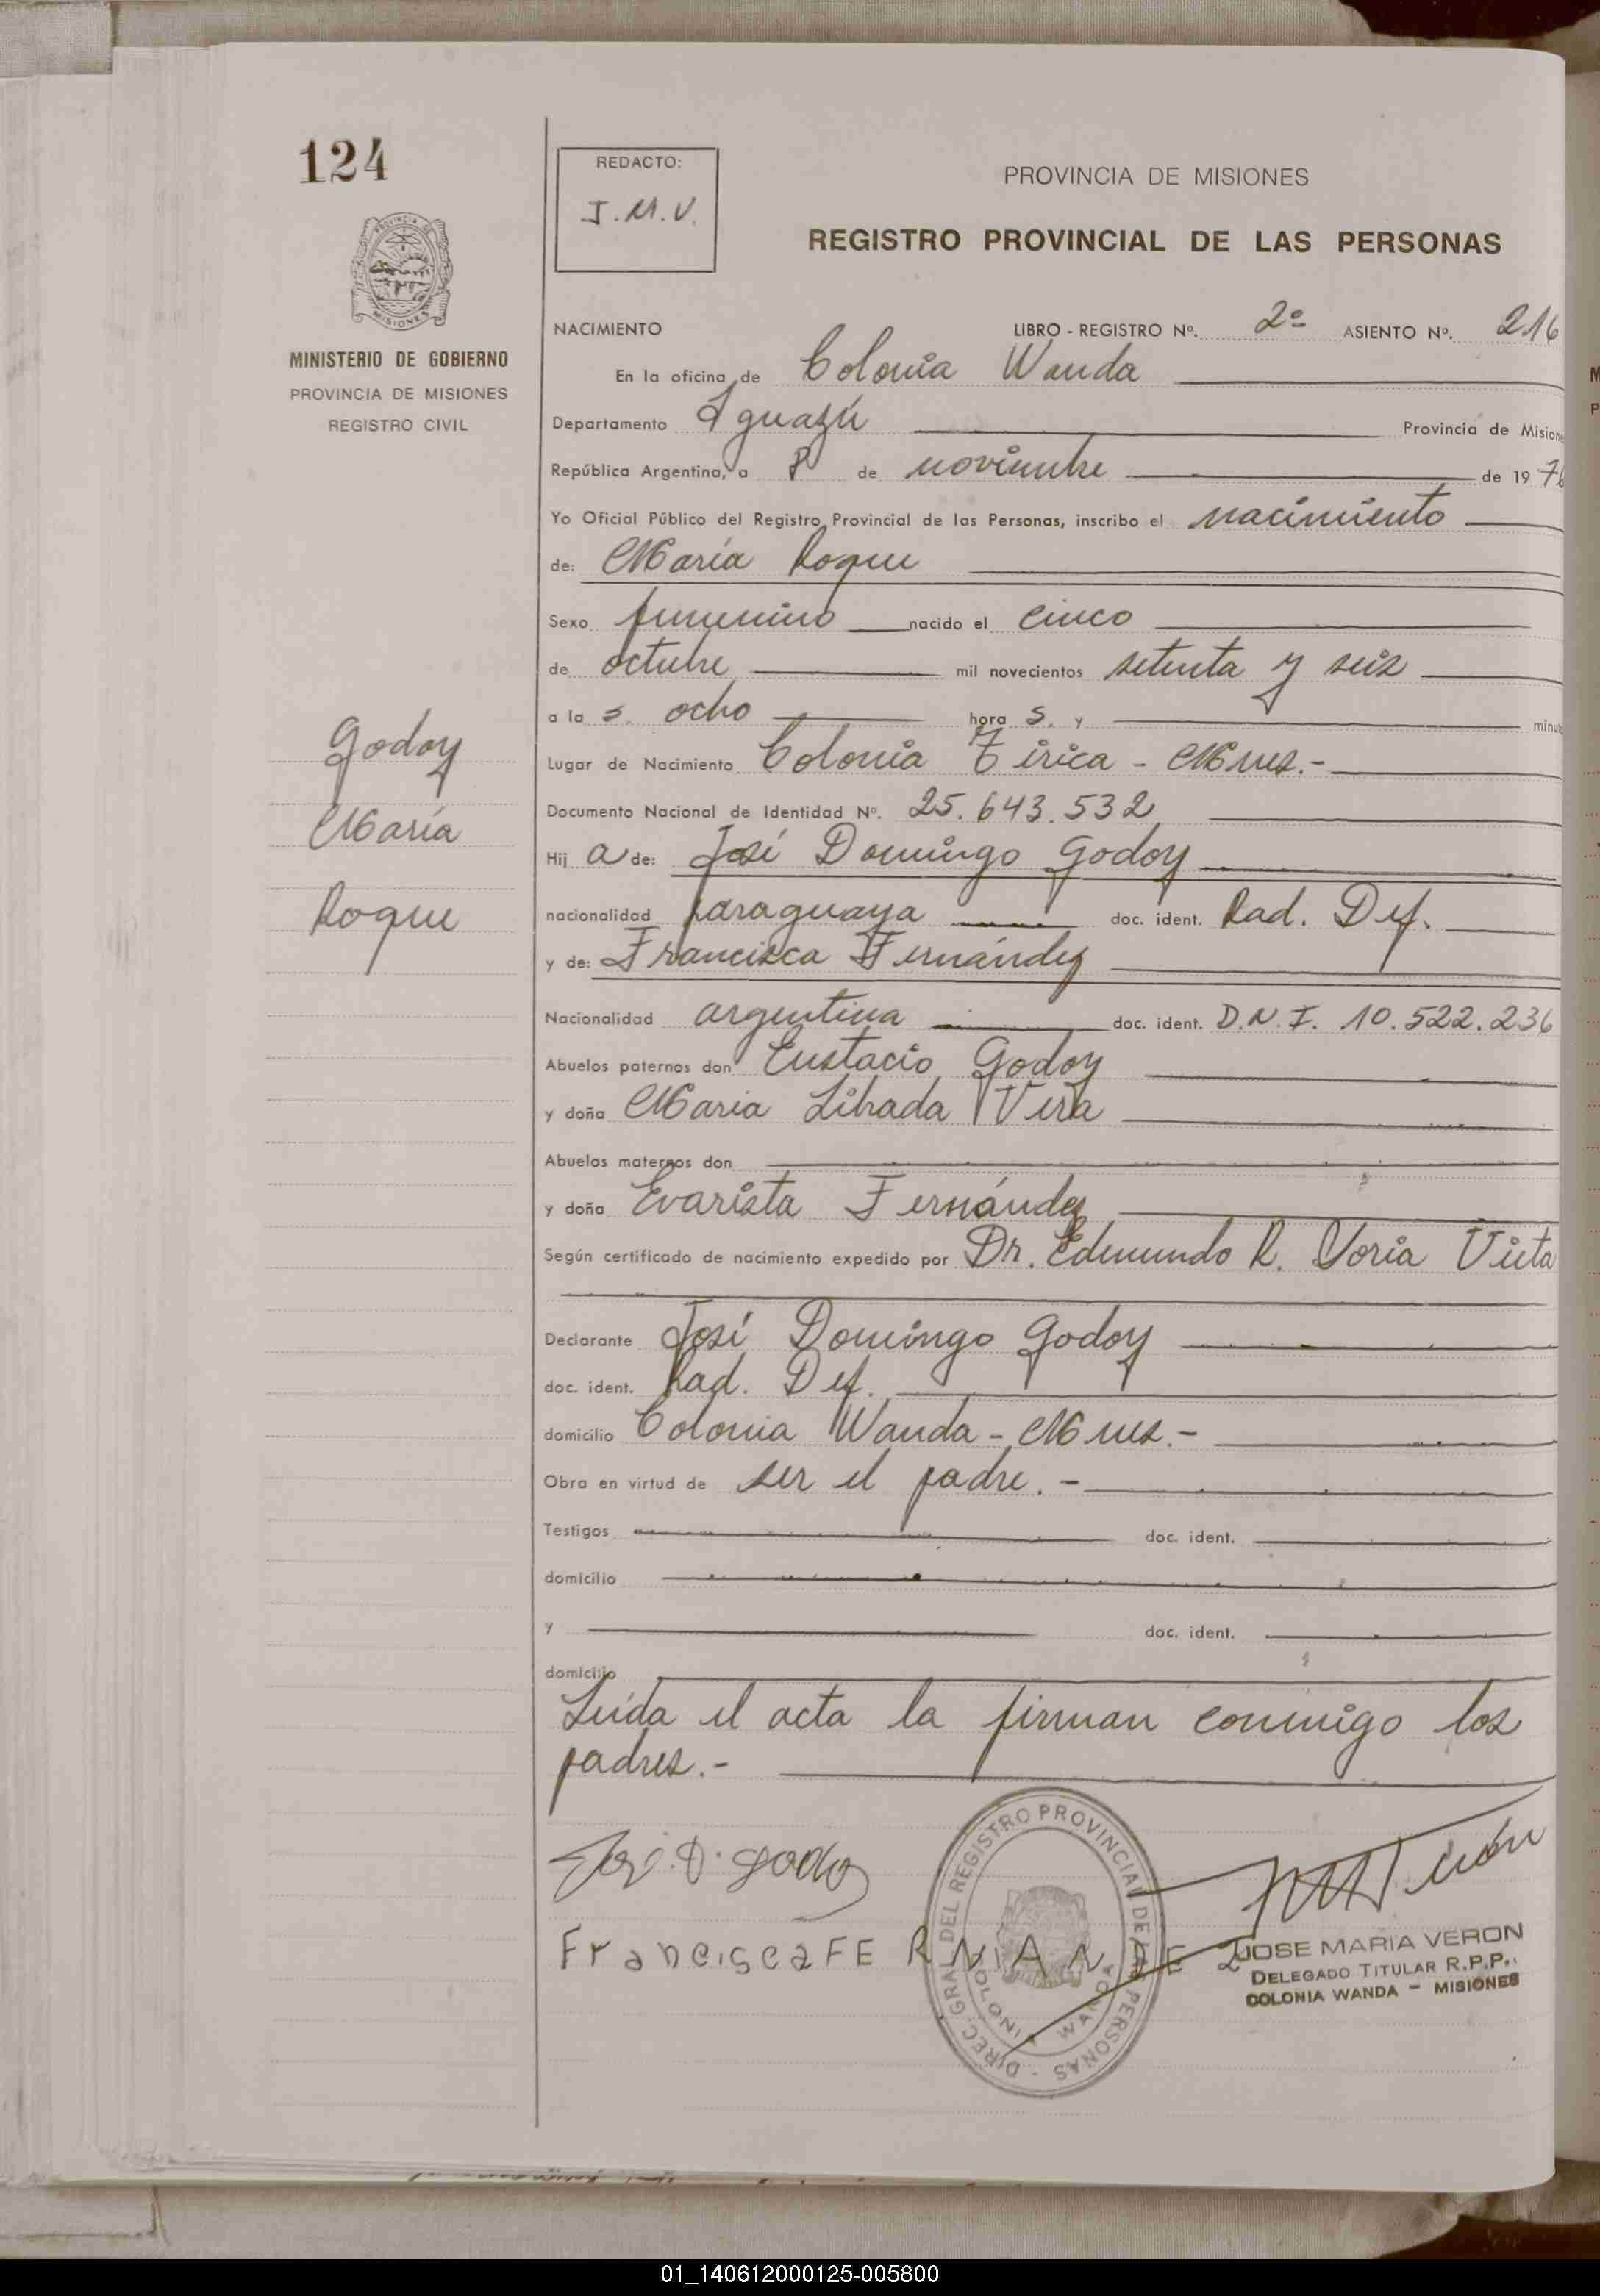 124
REDACTO:
J.M.V.
PROVINCIA DE MISIONES
REGISTRO PROVINCIAL DE LAS PERSONAS
PROVINCIA DE
MISIONES
MINISTERIO DE GOBIERNO
PROVINCIA DE MISIONES
REGISTRO CIVIL
NACIMIENTO LIBRO - REGISTRO Nº. 2º ASIENTO Nº. 216
En la oficina de Colonia Wanda
Departamento Iguazú Provincia de Misiones
República Argentina, a 8 de noviembre de 197
Yo Oficial Público del Registro Provincial de las Personas, inscribo el nacimiento
de: María Roque
Sexo femenino nacido el cinco
de octubre mil novecientos setenta y seis
a la s. ocho hora s. y minu
Godoy
María
Roque
Lugar de Nacimiento Colonia Tirica - Mnes.-
Documento Nacional de Identidad Nº. 25.643.532
Hij a de: José Domingo Godoy
nacionalidad paraguaya doc. ident. Rad. Def.
y de: Francisca Fernández
Nacionalidad argentina doc. ident. D.N.I. 10.522.236
Abuelos paternos don Eustacio Godoy
y doña María Librada Vera
Abuelos maternos don
y doña Evarista Fernández
Según certificado de nacimiento expedido por Dr. Edmundo R. Soria Vieta
Declarante José Domingo Godoy
doc. ident. Rad. Def.
domicilio Colonia Wanda - Mnes.-
Obra en virtud de ser el padre.-
Testigos doc. ident.
domicilio
y doc. ident.
domicilio
Leída el acta la firman conmigo los
padres.-
José. D. Godoy
Francisca FERNANDEZ
DIREC. GRAL. DEL REGISTRO PROVINCIAL DE LAS PERSONAS -
COLONIA WANDA
JOSE MARIA VERON
DELEGADO TITULAR R.P.P.
COLONIA WANDA - MISIONES
01_140612000125-005800